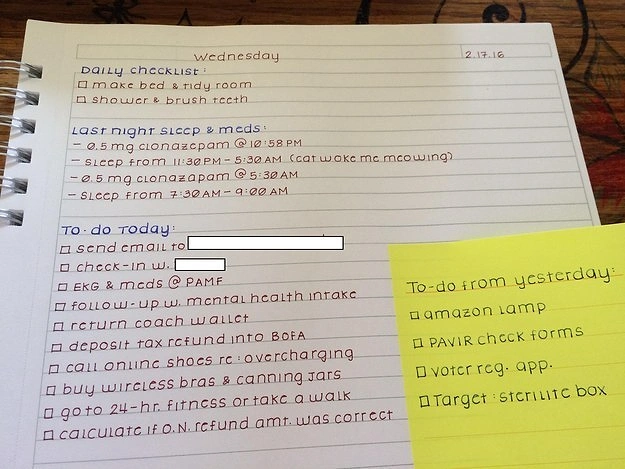 Wednesday
2.17.16
Daily checklist:
make bed & tidy room
shower & brush teeth
Last night sleep & meds:
- 0.5 mg clonazepam @ 10:58 PM
- sleep from 11:30 PM - 5:30 AM (cat woke me meowing)
- 0.5 mg clonazapam @ 5:30 AM
- sleep from 7:30 AM - 9:00 AM
To-do Today:
send email to
check-in w.
EKG & meds @ PAMF
follow-up w. mental health intake
return coach wallet
deposit tax refund into BOFA
call online shoes re: overcharging
buy wireless bras & canning jars
go to 24-hr. fitness or take a walk
calculate if O.N. refund amt. was correct
To-do from yesterday:
amazon lamp
PAVIR check forms
voter reg. app.
Target: sterilite box